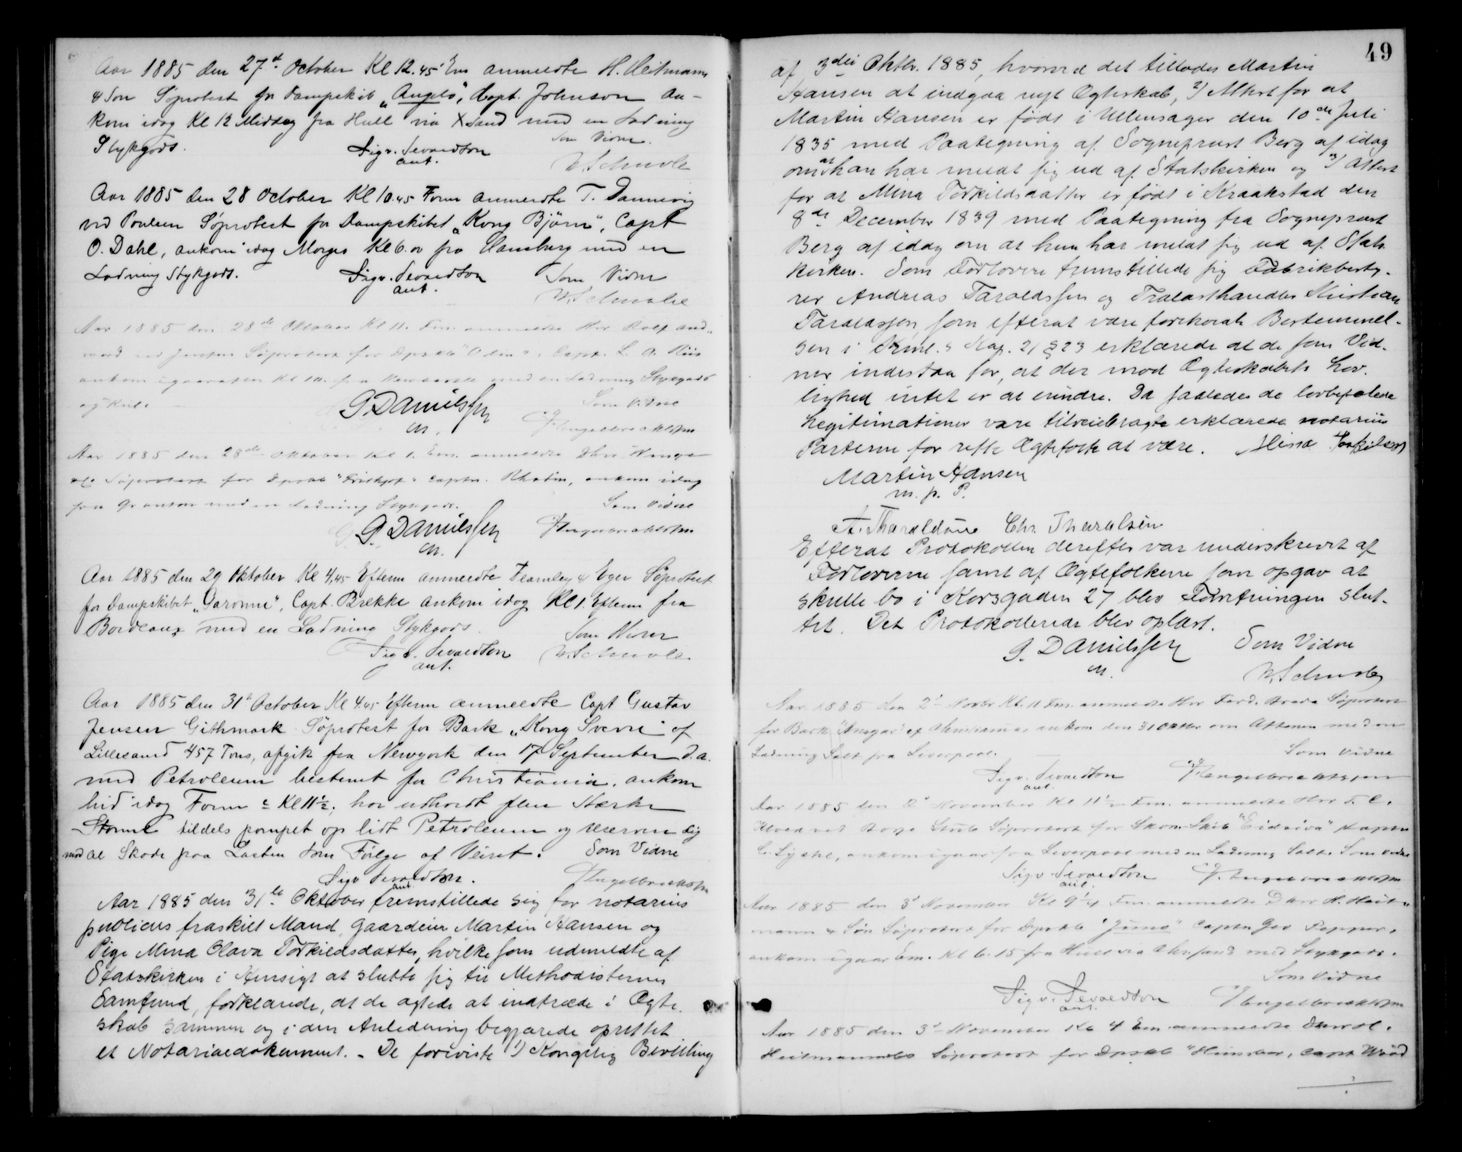 Aar 1885 den 27de October Kl 12.45 Em anmeldte H. Heitmann
& Søn Søprotest for Dampskib „Angelo", Capt. Johnson An-
kom idag Kl 12 Middag fra Hull via X Sand med en Ladning
Stykgods. Som Vidne
Sigv. Sevaldson
aut.
Aar 1885 den 28 October Kl 10.45 Form anmeldte T. Dannevig
ved Poulsen Søprotest for Dampskibet „Kong Bjørn", Capt
O. Dahl, ankom idag Morges Kl 6.00 fra Hamburg med en
Ladning Stykgods. Sigv. Sevaldson Som Vidne
aut.
Aar 1885 den 28de Oktober Kl 11. Fm. anmeldte Hr
Søprotest for Capt.
ankom igaaraftes Kl med en Ladning Stykgods
Som Vidne
P. Danielssen
Aar 1885 den 28de Oktober Kl 1. Em. anmeldte
Søprotest for Dpskb "Fridtjof" Captn. ankom idag
fra med en Ladning Stykgods. Som Vidne
P. Danielssen
Aar 1885 den 29 Oktober Kl 4.45 Efterm anmeldte Fearnley & Eger Søprotest
for Dampskibet „Garonne", Capt. Brekke ankom idag Kl 1 Efterm fra
Bordeaux med en Ladning Stykgods
Som Vidne
Sigv. Sevaldson
aut.
Aar 1885 den 31te October Kl 4.45 Efterm anmeldte Capt Gustav
Jensen Githmark Søprotest for Bark „Kong Sverre" af
Lillesand 457 Tons, afgik fra Newyork den 17 September d.a.
med Petroleum bestemt for Christiania, ankom
hid idag Form Kl 11½, har udholdt flere Stærke
Storme tildels pompet op lidt Petroleum og reserverer sig
mod al Skade paa Lasten som Følge af Veiret. Som Vidne
Sigv Sevaldson.
aut
Aar 1885 den 31te Oktober fremstillede sig for notarius
publicus fraskilt Mand, Gaardeier Martin Hansen og
Pige Mina Olava Torkildsdatter, hvilke som udmeldte af
Statskirken i Hensigt at slutte sig til Methodisternes
Samfund, forklarede, at de agtede at indtræde i Ægte-
skab sammen og i den Anledning begjærede oprettet
et Notarialdokument. - De foreviste 1) Kongelig Bevilling
49
af 3die Oktbr. 1885, hvorved det tillades Martin
Hansen at indgaa nyt Ægteskab, 2) Attest for at
Martin Hansen er født i Ullensager den 10de Juli
1835 med Paategning af Sogneprest Berg af idag
om at han har meldt sig ud af Statskirken og 3) Attest
for at Mina Torkildsdatter er født i Kraakstad den
8de December 1839 med Paategning fra Sogneprest
Berg af idag om at hun har meldt sig ud af Stats
kirken. Som Forlovere fremstillede sig Fabrikbesty-
rer Andreas Taraldssen og Trælasthandler Kristian
Taraldssen, som efterat være foreholdt Bestemmel-
sen i Kap. 21 § 23 erklærede at de som Vid-
ner indestaa for, at der mod Ægteskabets Lov-
lighed intet er at erindre. Da saaledes de lovbefalede
Legitimationer vare tilveiebragte erklærede notarius
Parterne for rette Ægtefolk at være. Mina Torkilsen
Martin Hansen
m. p. P.
A. Tharaldsen Chr. Tharalsen
Efterat Protokollen derefter var underskrevet af
Forloverne samt af Ægtefolkene som opgav at
skulle bo i Korsgaden 27 blev Forretningen slut-
tet. Det Protokollerede blev oplæst.
P. Danielssen Som Vidne
Aar 1885 den 2d Novbr Kl. 11 Fm. anmeldte Hr Søprotest
for Bark „Ansgar" af ankom den 31 Oktbr om Aftenen med en
Ladning Salt fra Liverpool. Som Vidne
Sigv. Sevaldson
aut.
Aar 1885 den 2d November Kl 11½ Fm. anmeldte Hr
Søprotest for Skon. Skib "Eidsiva" Captn
ankom igaar fra Liverpool med en Ladning Salt. Som Vidne
Sigv Sevaldson
aut.
Aar 1885 den 3d November Kl 9¼ Fm. anmeldte Dhrr H. Heit-
mann & Søn Søprotest for Dpskb "Juno" Captn
ankom igaar Em. Kl 6.15 fra Hull via med Stykgods.
Som Vidne
Sigv. Sevaldson
aut.
Aar 1885 den 3d November Kl 4 Em anmeldte
Søprotest for Dpskb Capt Wood